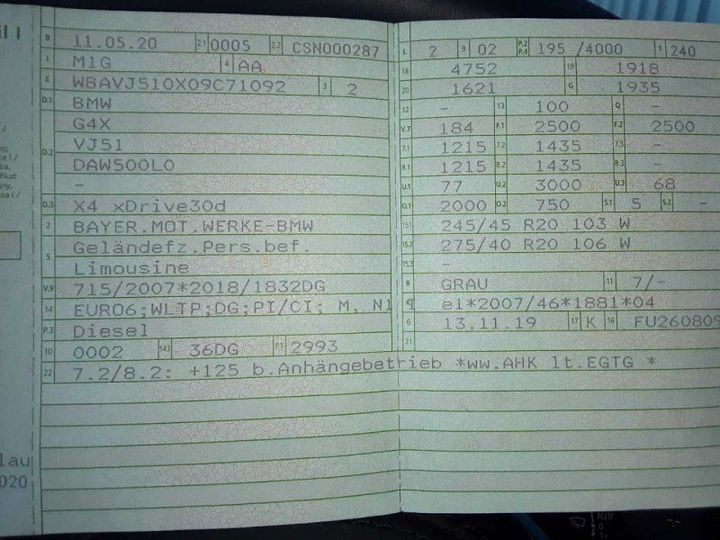 B 11.05.20 2.1 0005 2.2 CSN000287
J M1G 4 AA
E WBAVJ510X09C71092 3 2
D.1 BMW
D.2 G4X
VJ51
DAW500L0
-
D.3 X4 xDrive30d
2 BAYER.MOT.WERKE-BMW
5 Geländefz.Pers.bef.
Limousine
V.9 715/2007*2018/1832DG
14 EURO6;WLTP;DG;PI/CI; M, N1
P.3 Diesel
10 0002 14.1 36DG P.1 2993
22 7.2/8.2: +125 b.Anhängebetrieb *ww.AHK lt.EGTG *
L 2 9 02 P.2 P.4 195 /4000 T 240
18 4752 19 1918
20 1621 G 1935
12 - 13 100 Q -
V.7 184 F.1 2500 F.2 2500
7.1 1215 7.2 1435 7.3 -
8.1 1215 8.2 1435 8.3 -
U.1 77 U.2 3000 U.3 68
O.1 2000 O.2 750 S.1 5 S.2 -
15.1 245/45 R20 103 W
15.2 275/40 R20 106 W
15.3 -
R GRAU 11 7/-
K e1*2007/46*1881*04
6 13.11.19 17 K 16 FU260809
21
lau
020